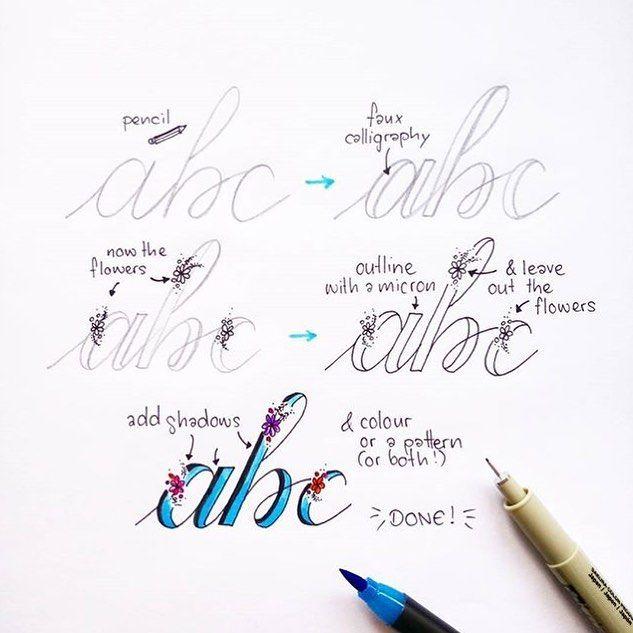 pencil
abc
faux
calligraphy
abc
now the
flowers
abc
outline
with a micron
& leave
out the
flowers
abc
add shadows
abc
& colour
or a pattern
(or both!)
DONE!